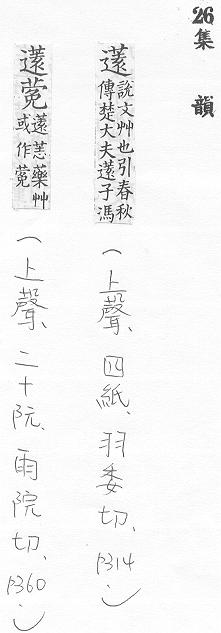 26集 韻
薳說文艸也引春秋傳楚大夫薳子馮(上聲、四紙、羽委切、P314、)
薳薳志藥艸或作䓕(上聲、二十阮、雨阮切、P360、)